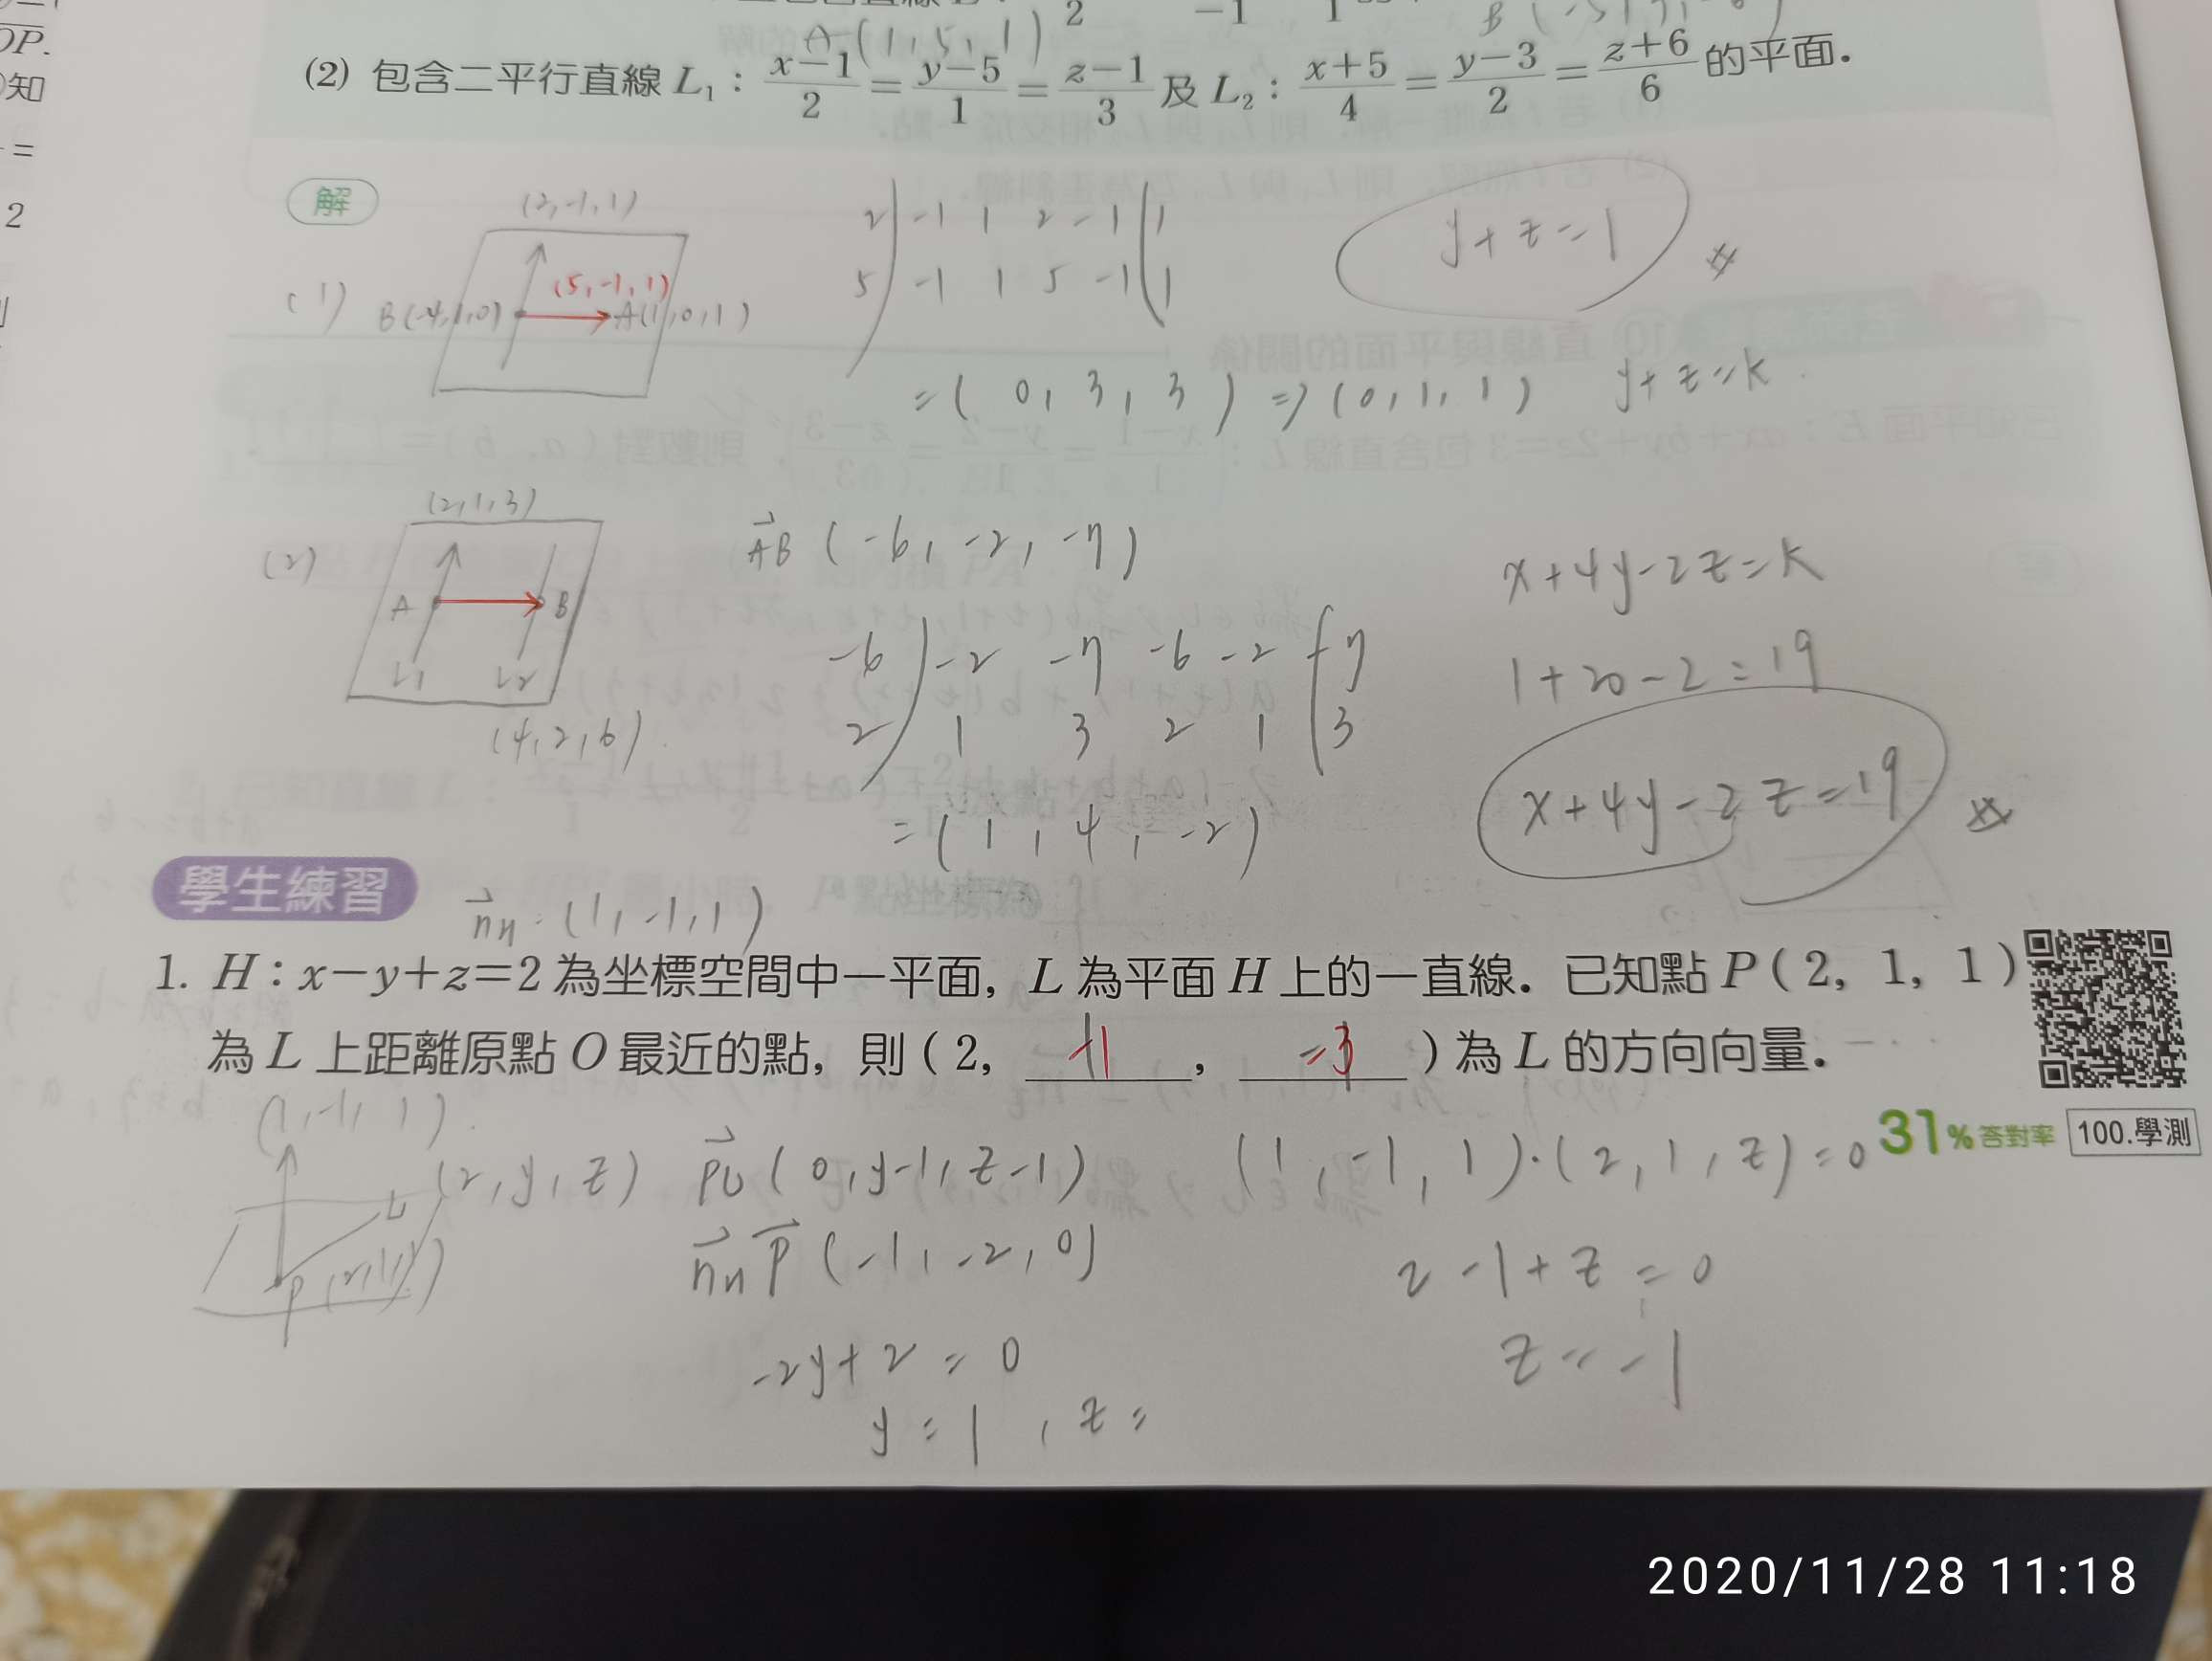 OP.
知
=
2
2 -1 1
A(1,5,1)
(2) 包含二平行直線 L₁：(x−1)/2 = (y−5)/1 = (z−1)/3 及 L₂：(x+5)/4 = (y−3)/2 = (z+6)/6 的平面．
解
(1) (2,-1,1)
(5,-1,1)
B(-4,1,0) A(1,0,1)
2 -1 1 2 -1 1
5 -1 1 5 -1 1
=( 0, 3, 3 ) ⇒ (0,1,1) y+z=k
y+z=1
(2) (2,1,3)
A B
L1 L2
(4,2,6)
AB (-6,-2,-7)
-6 -2 -7 -6 -2 -7
2 1 3 2 1 3
=(1,4,-2)
x+4y-2z=k
1+20-2=19
x+4y-2z=19
學生練習
nH:(1,-1,1)
1. H：x−y+z=2 為坐標空間中一平面，L 為平面 H 上的一直線．已知點 P(2, 1, 1)
為 L 上距離原點 O 最近的點，則 (2, -1, -3) 為 L 的方向向量．
31% 答對率 100.學測
(1,-1,1)
(2,y,z)
L
P(2,1,1)
PL (0,y-1,z-1)
nH P (-1,-2,0)
-2y+2=0
y=1, z=
(1,-1,1)·(2,1,z)=0
2-1+z=0
z=-1
2020/11/28 11:18